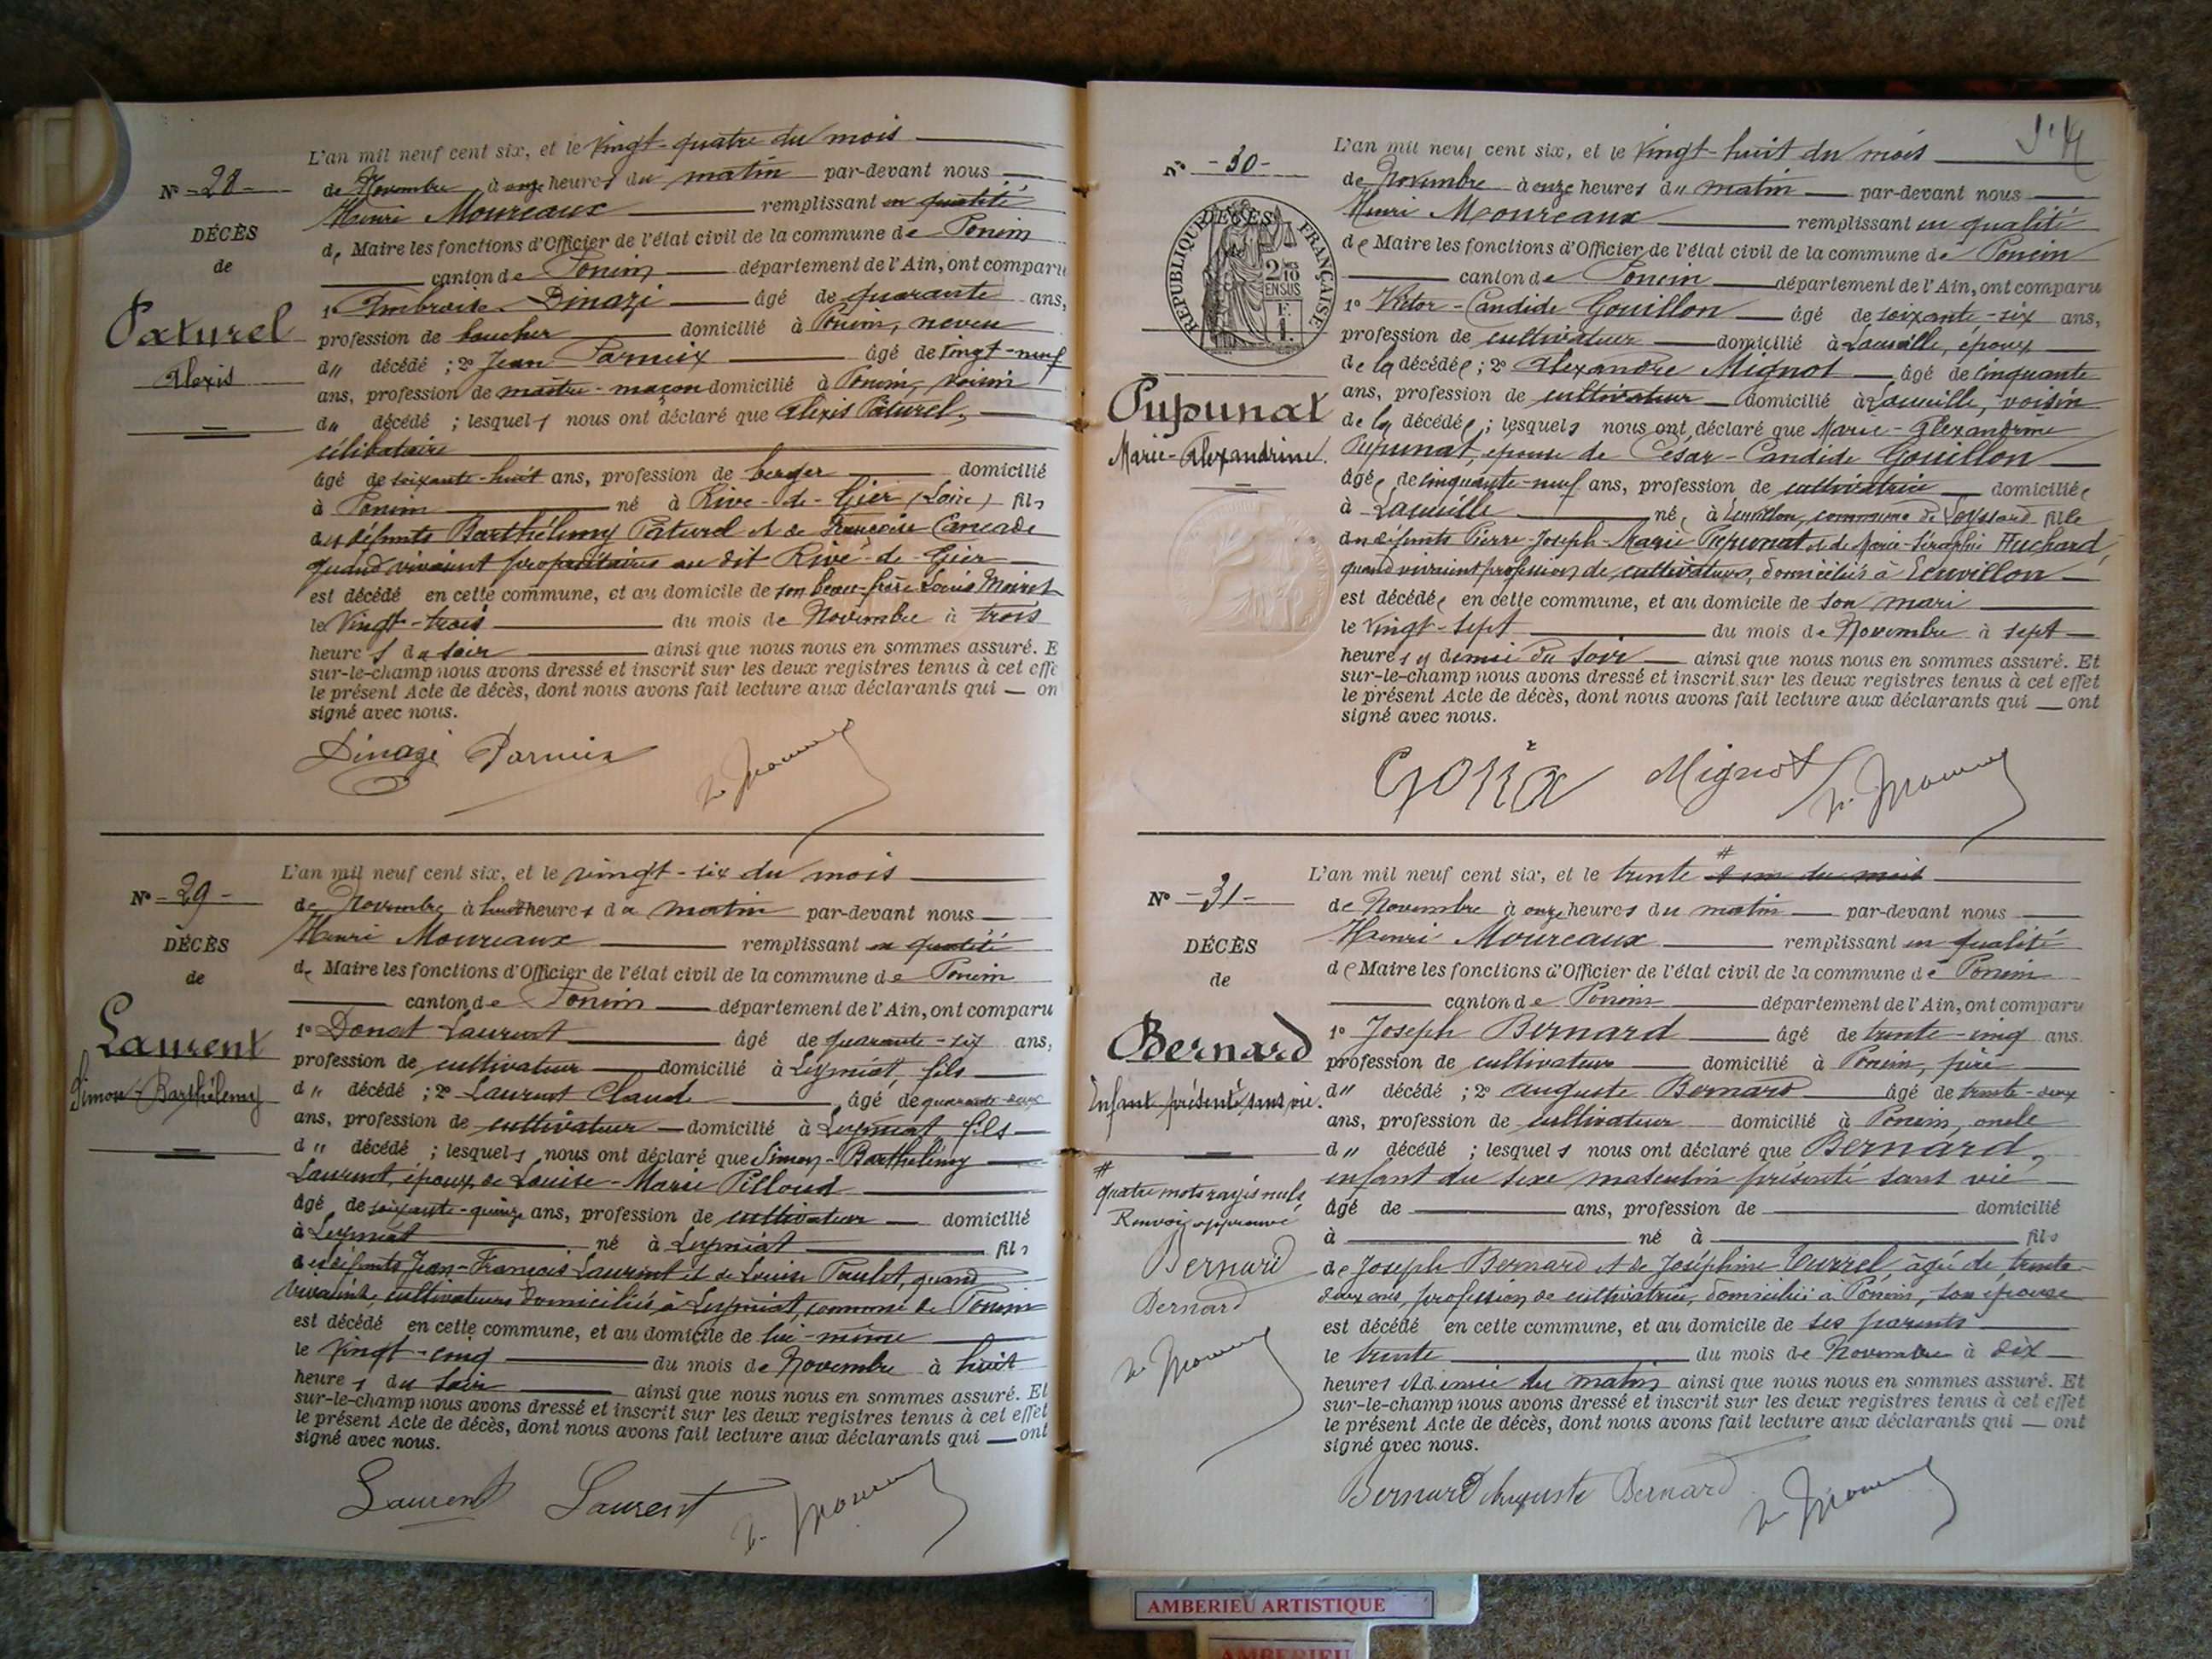 L'an mil neuf cent six, et le vingt-quatre du mois
N° - 28 -
de Novembre à onze heures du matin par-devant nous
Henri Moureaux remplissant en qualité
DÉCÈS
de Maire les fonctions d'Officier de l'état civil de la commune de Poncin
de
canton de Poncin département de l'Ain, ont comparu
1° Ambroise Dinazi âgé de quarante ans,
Paturel
profession de boucher domicilié à Poncin, neveu
du décédé ; 2° Jean Parneix âgé de vingt-neuf
Alexis
ans, profession de maître-maçon domicilié à Poncin, voisin
du décédé ; lesquels nous ont déclaré que Alexis Paturel,
célibataire
âgé de soixante-huit ans, profession de berger domicilié
à Poncin né à Rive-de-Gier (Loire) fils
des défunts Barthélemy Paturel et de Françoise
quand vivaient propriétaires au dit Rive-de-Gier
est décédé en cette commune, et au domicile de son beau-frère Louis
le vingt-trois du mois de Novembre à trois
heures du soir ainsi que nous nous en sommes assuré. E
sur-le-champ nous avons dressé et inscrit sur les deux registres tenus à cet effe
le présent Acte de décès, dont nous avons fait lecture aux déclarants qui — on
signé avec nous.
Dinazi Parneix
L'an mil neuf cent six, et le vingt-six du mois
N° - 29 -
de Novembre à huit heures du matin par-devant nous
Henri Moureaux remplissant en qualité
DÉCÈS
de Maire les fonctions d'Officier de l'état civil de la commune de Poncin
de
canton de Poncin département de l'Ain, ont comparu
1° Donat Laurent âgé de quarante-six ans,
Laurent
profession de cultivateur domicilié à Leymiat, fils
Simon-Barthélemy
du décédé ; 2° Laurent Claude âgé de quarante-deux
ans, profession de cultivateur domicilié à Leymiat fils
du décédé ; lesquels nous ont déclaré que Simon-Barthélemy
Laurent, époux de Louise-Marie Pilloud
âgé de soixante-quinze ans, profession de cultivateur domicilié
à Leymiat né à Leymiat fils
des défunts Jean-François Laurent et de Louise Paulet, quand
vivaient, cultivateurs domiciliés à Leymiat, commune de Poncin
est décédé en cette commune, et au domicile de lui-même
le vingt-cinq du mois de Novembre à huit
heures du soir ainsi que nous nous en sommes assuré. Et
sur-le-champ nous avons dressé et inscrit sur les deux registres tenus à cet effet
le présent Acte de décès, dont nous avons fait lecture aux déclarants qui — ont
signé avec nous.
Laurent Laurent
L'an mil neuf cent six, et le vingt-huit du mois
N° - 30 -
de Novembre à onze heures du matin par-devant nous
Henri Moureaux remplissant en qualité
de Maire les fonctions d'Officier de l'état civil de la commune de Poncin
RÉPUBLIQUE FRANÇAISE
DÉCÈS
2/10
EN SUS
F.
1.
canton de Poncin département de l'Ain, ont comparu
1° Victor-Candide Gouillon âgé de soixante-six ans,
profession de cultivateur domicilié à époux
de la décédée ; 2° Alexandre Mignot âgé de cinquante
Pupunat
ans, profession de cultivateur domicilié à voisin
de la décédée ; lesquels nous ont déclaré que Marie-Alexandrine
Marie-Alexandrine.
Pupunat, épouse de César-Candide Gouillon
âgée de cinquante-neuf ans, profession de cultivatrice domiciliée
à née à commune de fille
des défunts Pierre-Joseph-Marie Pupunat et de Marie-Séraphie
quand vivaient profession de cultivateurs, domiciliés à
est décédée en cette commune, et au domicile de son mari
le vingt-sept du mois de Novembre à sept
heures et demie du soir ainsi que nous nous en sommes assuré. Et
sur-le-champ nous avons dressé et inscrit sur les deux registres tenus à cet effet
le présent Acte de décès, dont nous avons fait lecture aux déclarants qui — ont
signé avec nous.
Mignot
L'an mil neuf cent six, et le trente # et un du mois
N° - 31 -
de Novembre à onze heures du matin par-devant nous
Henri Moureaux remplissant en qualité
DÉCÈS
de Maire les fonctions d'Officier de l'état civil de la commune de Poncin
de
canton de Poncin département de l'Ain, ont comparu
1° Joseph Bernard âgé de trente-cinq ans
Bernard
profession de cultivateur domicilié à Poncin, père
du décédé ; 2° Auguste Bernard âgé de trente-deux
Enfant présenté sans vie.
ans, profession de cultivateur domicilié à Poncin, oncle
du décédé ; lesquels nous ont déclaré que Bernard,
enfant du sexe masculin présenté sans vie
# quatre mots rayés nuls
Renvoi approuvé
âgé de ans, profession de domicilié
à né à fils
Bernard
de Joseph Bernard et de Joséphine âgée de trente-
deux ans, profession de cultivatrice, domiciliée à Poncin, son épouse
Bernard
est décédé en cette commune, et au domicile de ses parents
le trente du mois de Novembre à dix
heures et demie du matin ainsi que nous nous en sommes assuré. Et
sur-le-champ nous avons dressé et inscrit sur les deux registres tenus à cet effet
le présent Acte de décès, dont nous avons fait lecture aux déclarants qui — ont
signé avec nous.
Bernard Auguste Bernard
AMBERIEU ARTISTIQUE
AMBERIEU